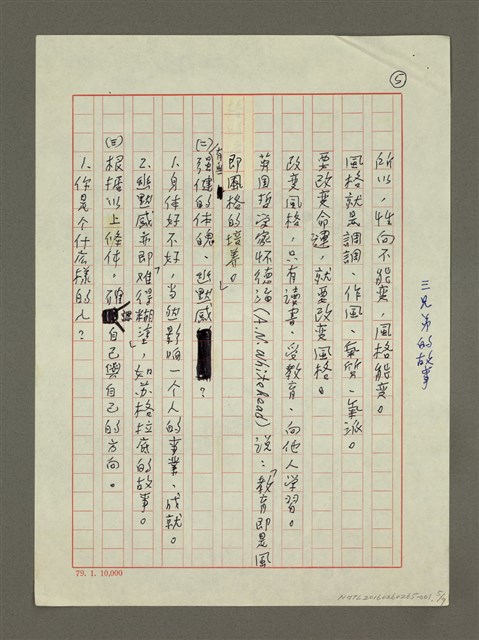 ⑤
三兄弟的故事
所以，性向不能变，風格能变。
風格就是調調、作風、氣質、氣派。
要改变命運，就要改变風格。
改变風格，只有讀書、受教育、向他人学習。
英国哲学家怀德海(A.N. Whitehead)说：「教育即是風
即風格的培养。」
(二)強健的体魄、幽默感？
1.身体好不好，当然影响一个人的事業、成就。
2.幽默感亦即「难得糊塗」，如苏格拉底的故事。
(三)根据以上條件，確認自己與自己的方向。
1.你是个什么樣的人？
79. 1. 10,000
5/7